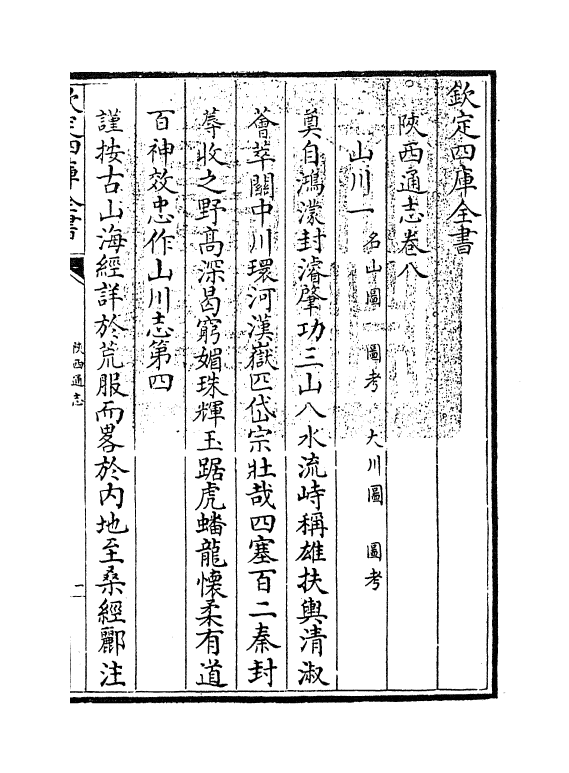 欽定四庫全書
陜西通志卷八
山川一 名山圖 圖考 大川圖 圖考
奠自鴻濛封濬肇功三山八水流峙稱雄扶輿清淑
薈萃關中川環河漢嶽匹岱宗壯哉四塞百二秦封
蓐收之野髙深曷窮媚珠輝玉踞虎蟠龍懷柔有道
百神效忠作山川志第四
謹按古山海經詳於荒服而畧於内地至桑經酈注
欽定四庫全書
陜西通志